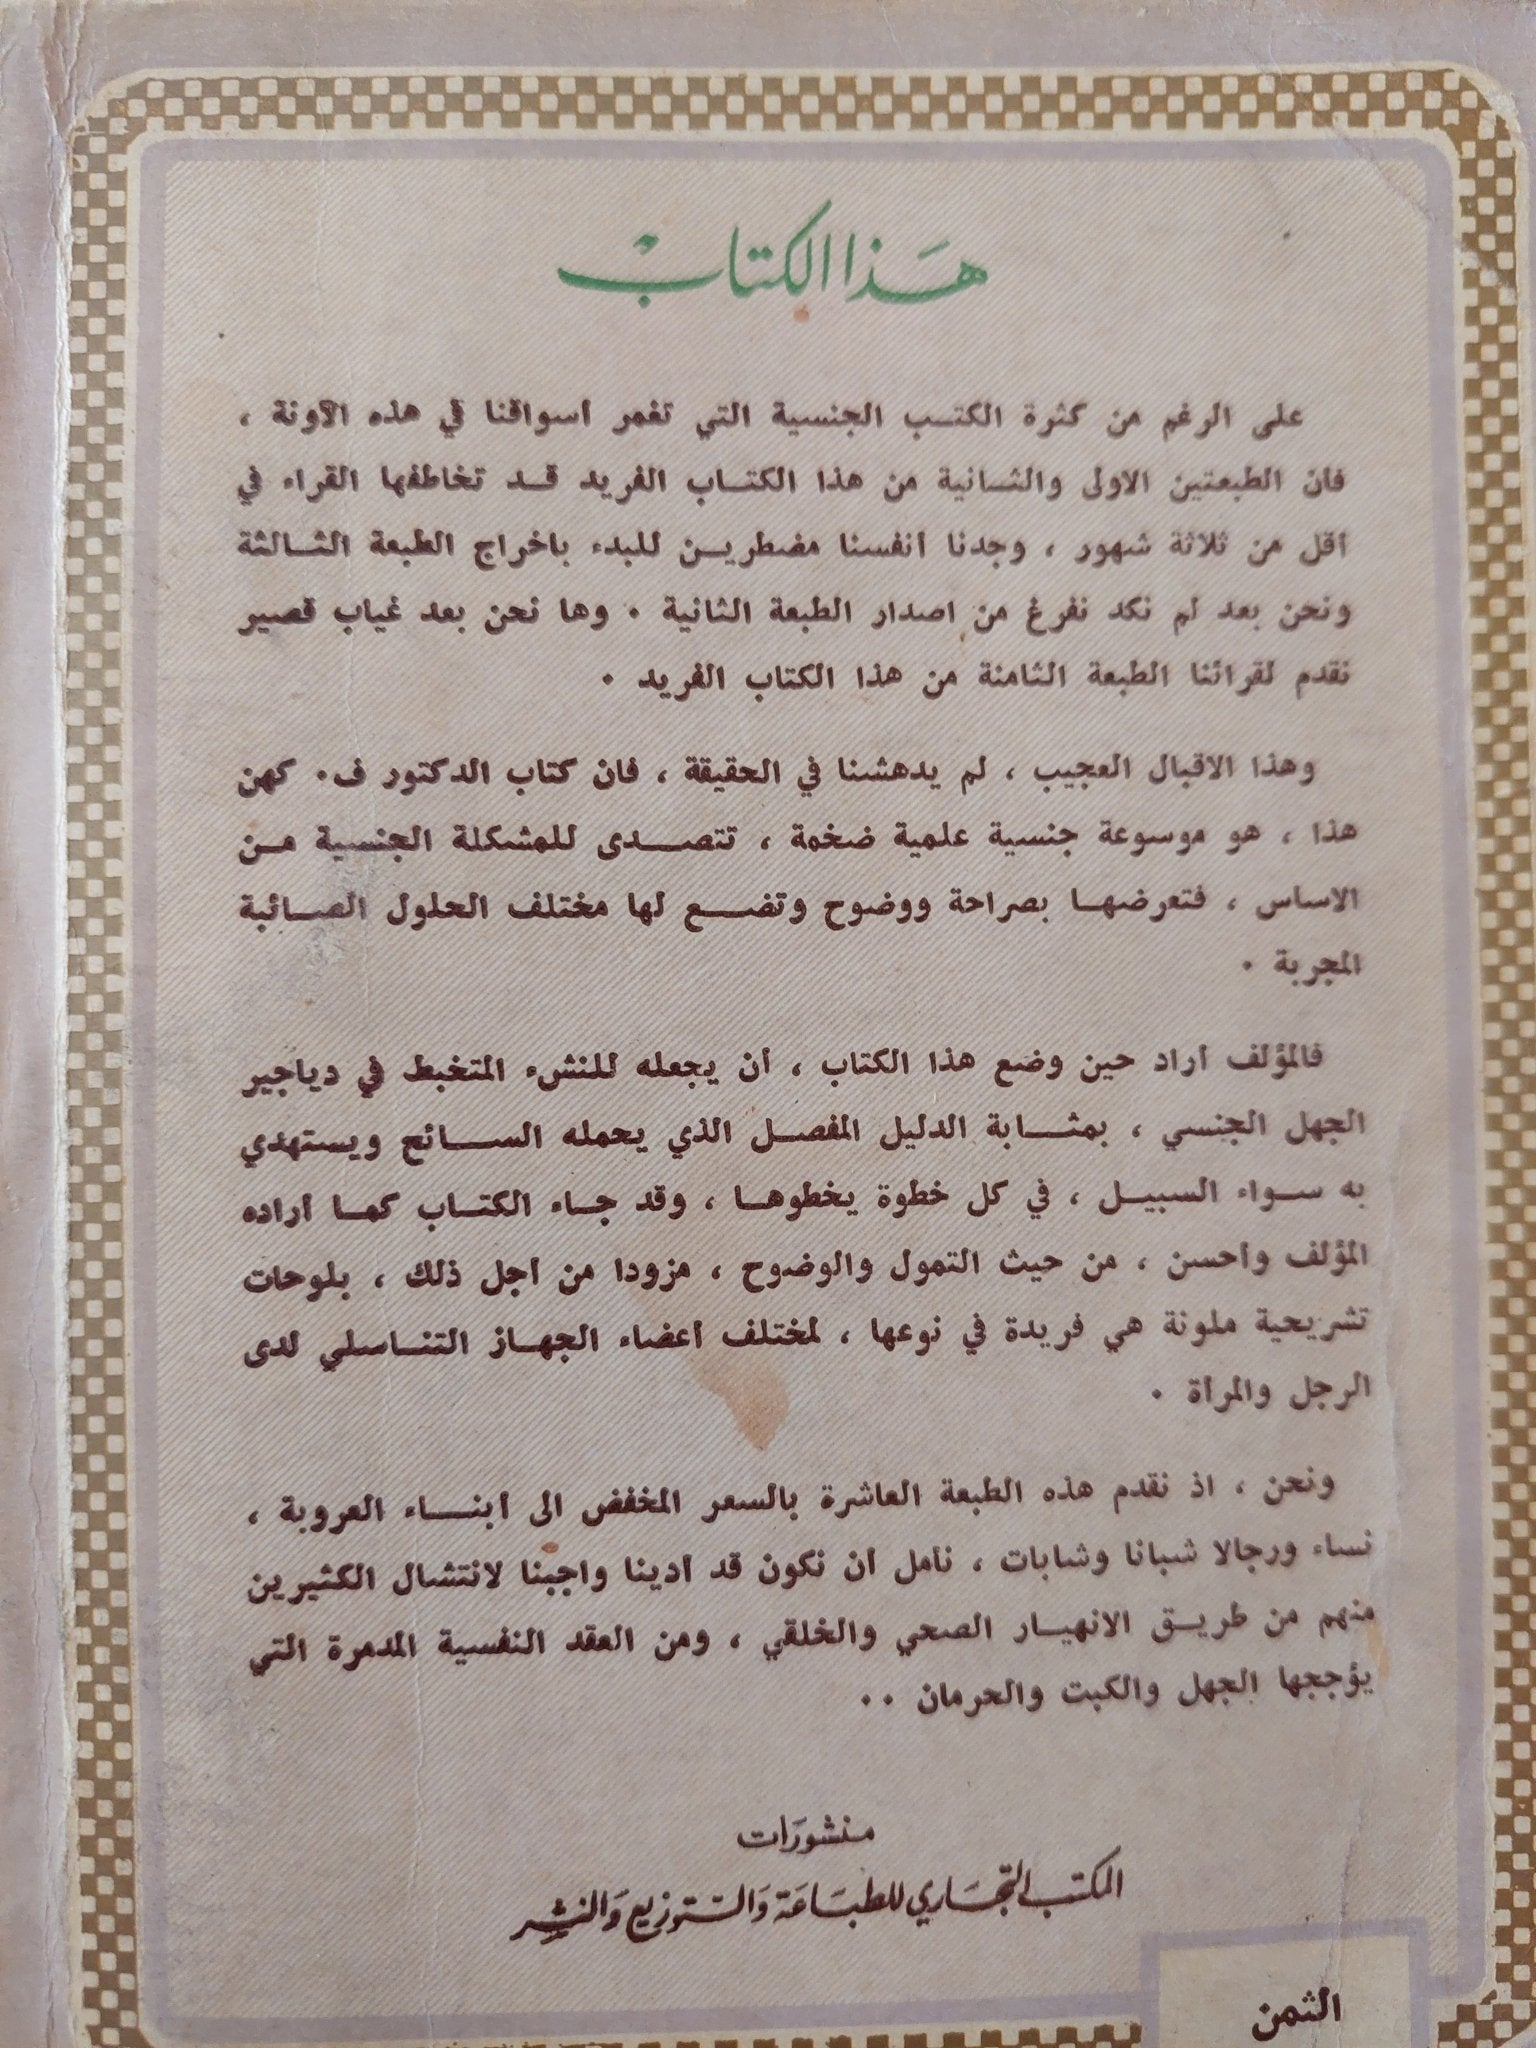 هَذا الكتابْ
على الرغم من كثرة الكتب الجنسية التي تغمر أسواقنا في هذه الآونة ،
فان الطبعتين الاولى والثانية من هذا الكتاب الفريد قد تخاطفها القراء في
أقل من ثلاثة شهور ، وجدنا أنفسنا مضطرين للبدء باخراج الطبعة الثالثة
ونحن بعد لم نكد نفرغ من اصدار الطبعة الثانية . وها نحن بعد غياب قصير
نقدم لقرائنا الطبعة الثامنة من هذا الكتاب الفريد .
وهذا الاقبال العجيب ، لم يدهشنا في الحقيقة ، فان كتاب الدكتور ف. كهن
هذا ، هو موسوعة جنسية علمية ضخمة ، تتصدى للمشكلة الجنسية من
الاساس ، فتعرضها بصراحة ووضوح وتضع لها مختلف الحلول الصائبة
المجربة .
فالمؤلف أراد حين وضع هذا الكتاب ، أن يجعله للنشء المتخبط في دياجير
الجهل الجنسي ، بمثابة الدليل المفصل الذي يحمله السائح ويستهدي
به سواء السبيل ، في كل خطوة يخطوها ، وقد جاء الكتاب كما أراده
المؤلف وأحسن ، من حيث التمول والوضوح ، مزودا من أجل ذلك ، بلوحات
تشريحية ملونة هي فريدة في نوعها ، لمختلف أعضاء الجهاز التناسلي لدى
الرجل والمرأة .
ونحن ، اذ نقدم هذه الطبعة العاشرة بالسعر المخفض الى أبناء العروبة ،
نساء ورجالا شبانا وشابات ، نأمل أن نكون قد أدينا واجبنا لانتشال الكثيرين
منهم من طريق الانهيار الصحي والخلقي ، ومن العقد النفسية المدمرة التي
يؤججها الجهل والكبت والحرمان ..
منشورَات
المكتب التجَاري للطبَاعَة وَالتوزيع وَالنشر
الثمن